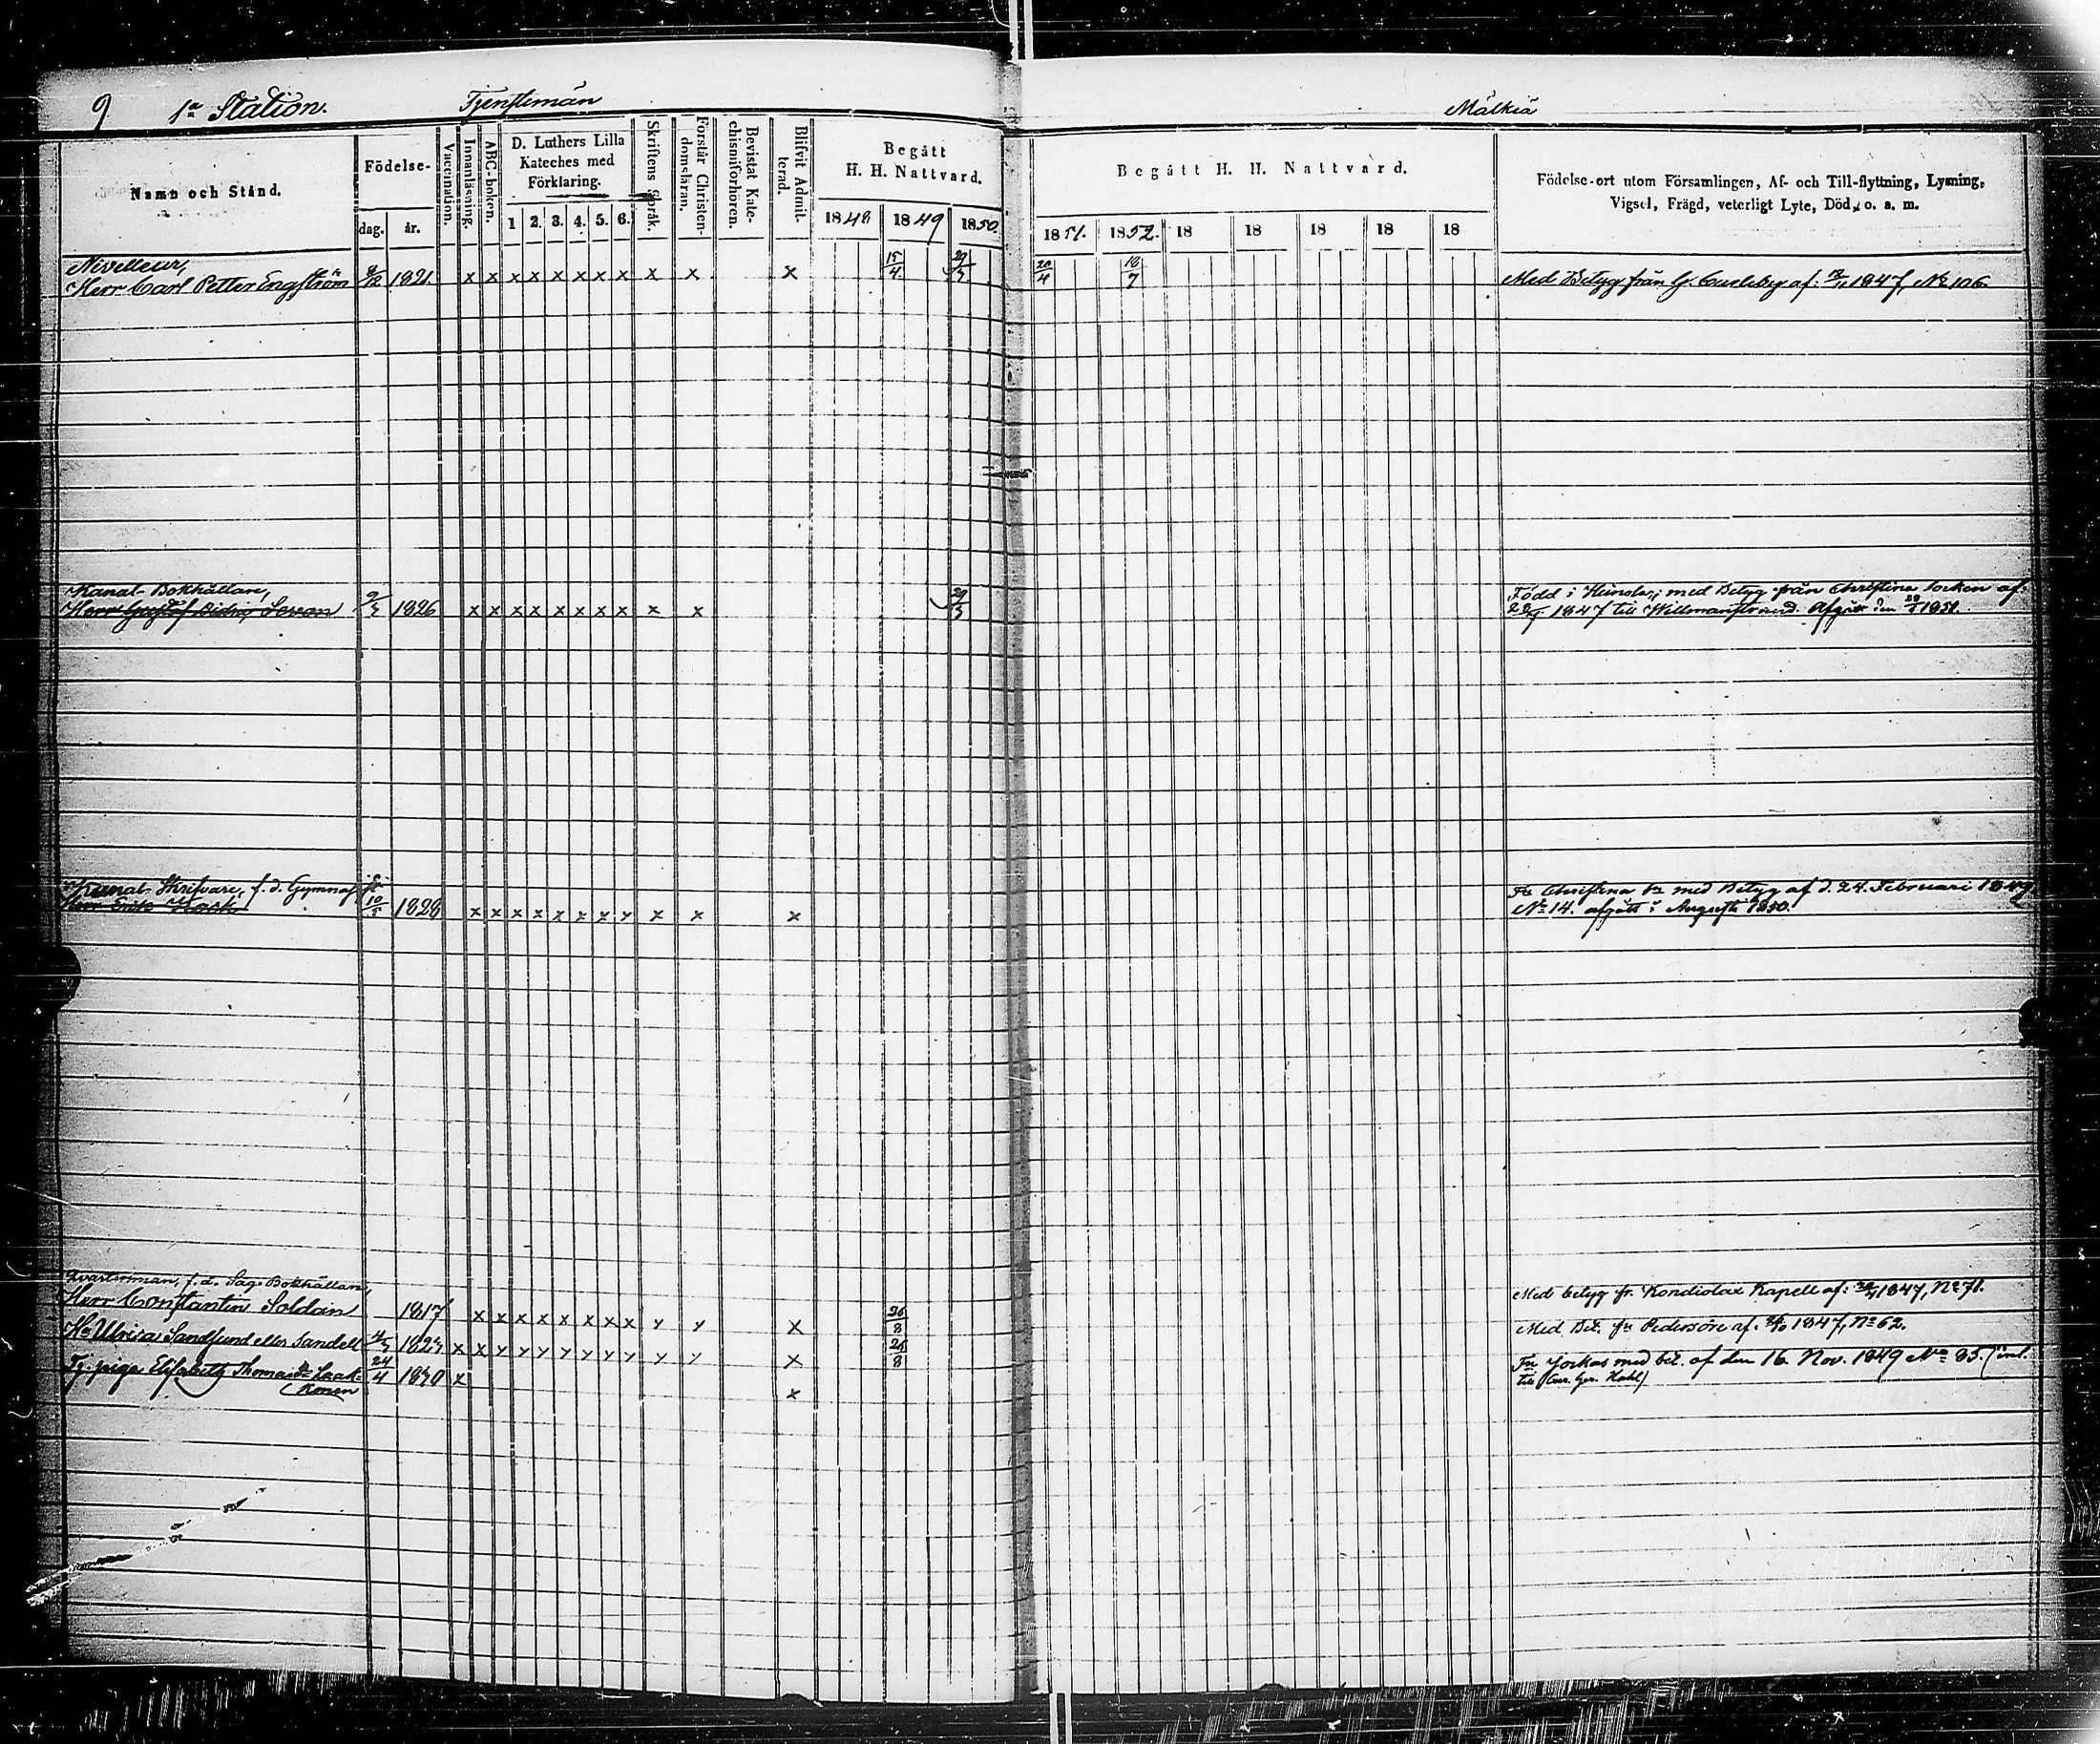 9 1a Station. Tjenstemän Mälkiä
Namn och Stånd.
Födelse-
dag. år.
Vaccination.
Innanläsning.
ABC-boken.
D. Luthers Lilla
Kateches med
Förklaring.
1 2. 3. 4. 5. 6.
Skriftens Språk.
Förstår Christen-
domsläran.
Bevistat Kate-
chismiförhören.
Blifvit Admit-
terad.
Begått
H. H. Nattvard.
1848 1849 1850
Begått H. H. Nattvard.
1851. 1852. 18 18 18 18 18
Födelse-ort utom Församlingen, Af- och Till-flyttning, Lysning,
Vigsel, Frägd, veterligt Lyte, Död, o. a. m.
Nivelleur,
Herr Carl Petter Engström 8/12 1821. x x x x x x x x x x x 15/4. 29/3. 20/4 18/7 Med Betyg från G. Carleby af: 1847, No 106.
Kanal-Bokhållare,
Herr Gustaf 9/3 1826 x x x x x x x x x x 29/3
Född i Heinola; med Betyg från Christina Socken af:
1847 till Willmanstrand. Afgått den 1851.
Kanal-Skrifvare, f. d. Gymnasist
Herr Erik 10/5 1828 x x x x x x x x x x x
Fr. Christina med Betyg af d. 24. Februari 1849
No 14. afgått i Augusti 1850.
Qvartersman, f. d. Såg-Bokhållare,
Herr Constantin Soldan 1817 x x x x x x x x x x x 26/8 Med betyg fr. Kondiolax Kapell af: 1847, No 71.
Hu Ulrica Sandlund eller Sandell x x x x x x x x x x x x 26/8 Med Bet. fr. Pedersöre af. 1847, No 62.
Tj. piga Elisabeth Thomasdr Laak- 24/4 1830 x x
konen
Fr Jockas med bet. af den 16. Nov. 1849 No 85.
till